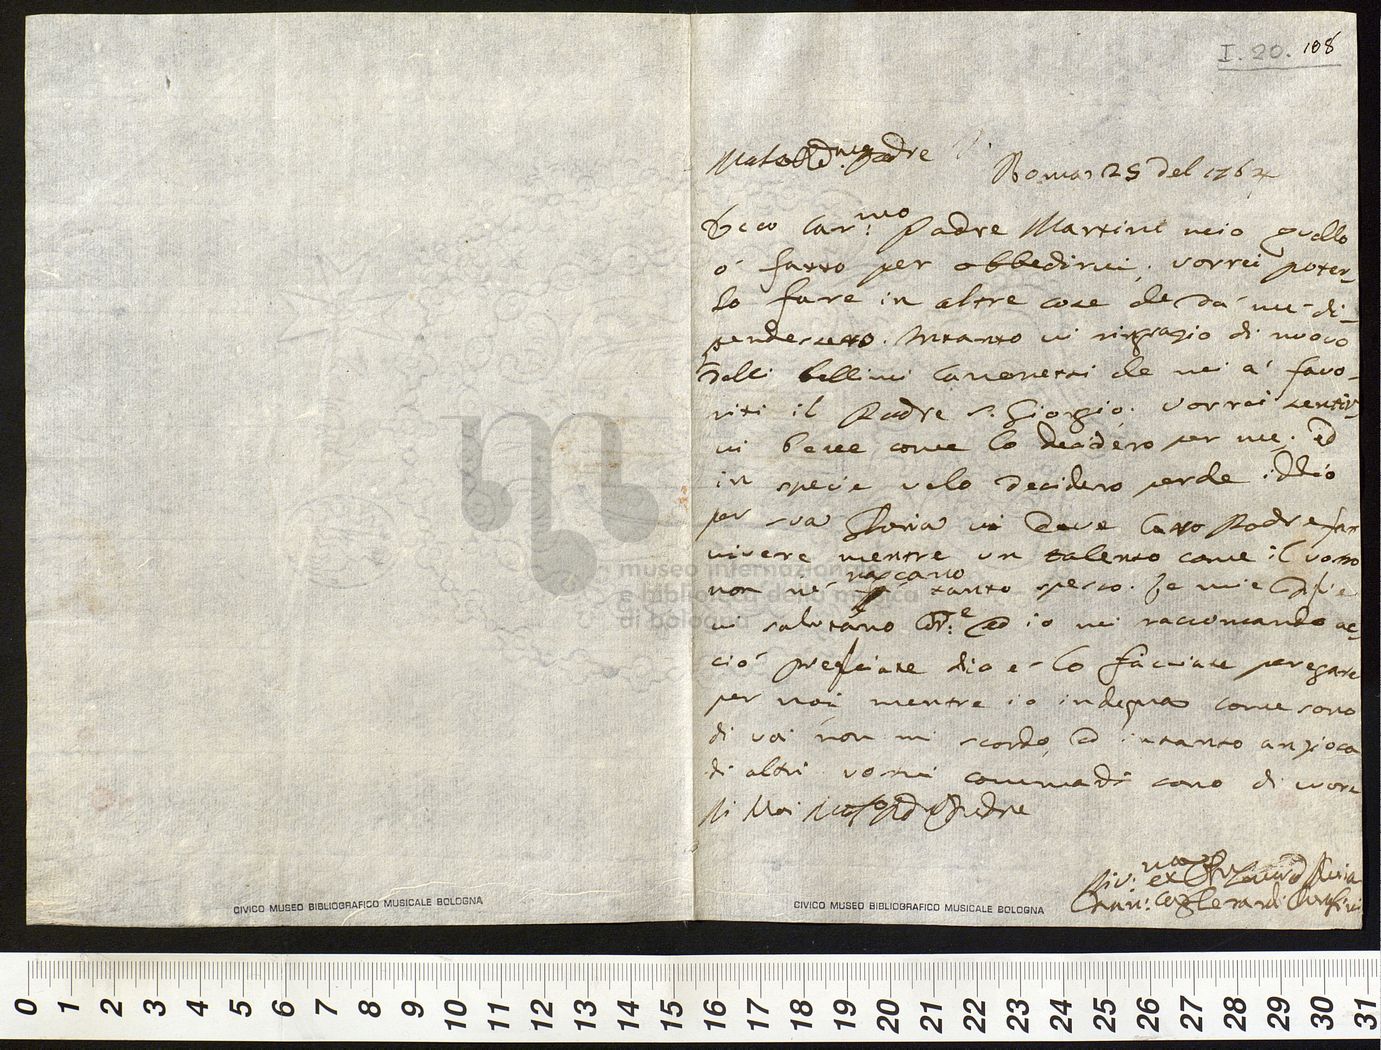 I. 20. 108
Padre
Roma 25 del 1764
Ecco Car.mo Padre Martini quello
ò fatto per obbedirvi, vorrei poter
lo fare in altre cose che da me di-
pendessero. Intanto vi ringrazio di nuovo
delli bellini che mi à favo-
riti il Padre S. Giorgio. vorrei sentir
vi bene come lo desidero per me. ed
in specie velo desidero perche iddio
per sua Gloria vi deve Padre far
vivere mentre un talento come il vostro
non nascano tanto spesso. le mie
vi salutano ed io mi raccomando ac-
ciò preghiate dio e lo facciate pregare
per noi mentre io indegna come sono
di voi non mi scordo, ed intanto
di altri vostri comandi sono di vero
di Voi Padre
museo internazionale
e biblioteca della musica
di bologna
CIVICO MUSEO BIBLIOGRAFICO MUSICALE BOLOGNA
CIVICO MUSEO BIBLIOGRAFICO MUSICALE BOLOGNA
0 1 2 3 4 5 6 7 8 9 10 11 12 13 14 15 16 17 18 19 20 21 22 23 24 25 26 27 28 29 30 31